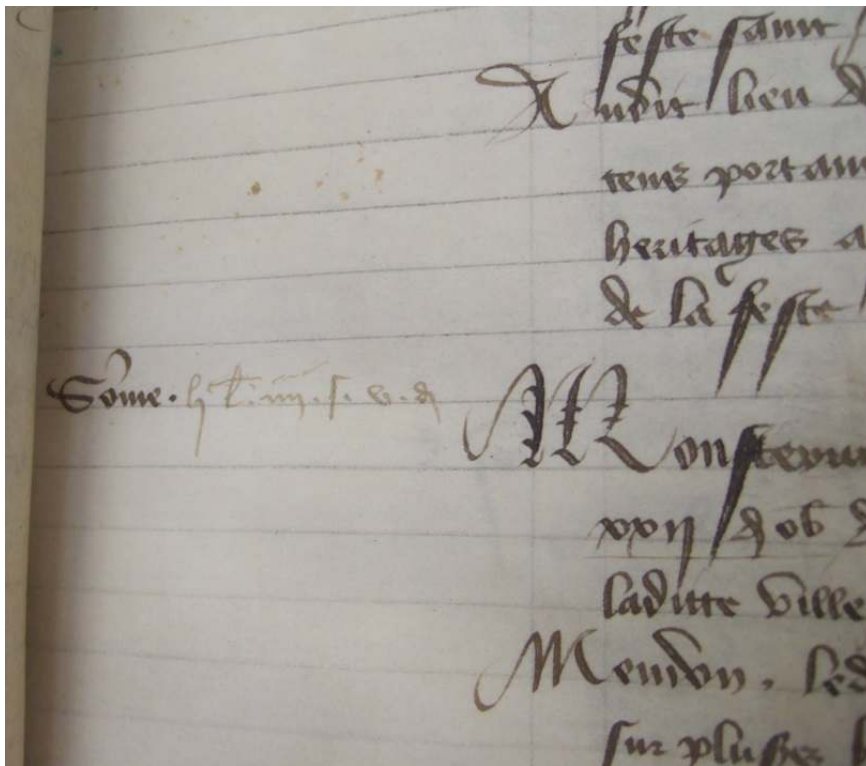 feste saint
Audit lieu d
tens portan
heritages a
de la feste
Some. h l. iiii. s. v. d
Monstereu
xxii d ob
laditte ville
Mendon. led
sur plus